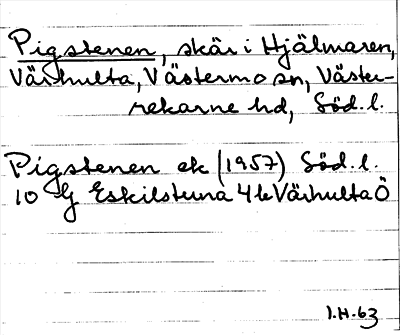 Pigstenen, skär i Hjälmaren,
Värhulta, Västermo sn, Väster-
rekarne hd, Söd. l.
Pigstenen ek (1957) Söd. l.
10 G Eskilstuna 4 b Värhulta Ö
I.H. 63